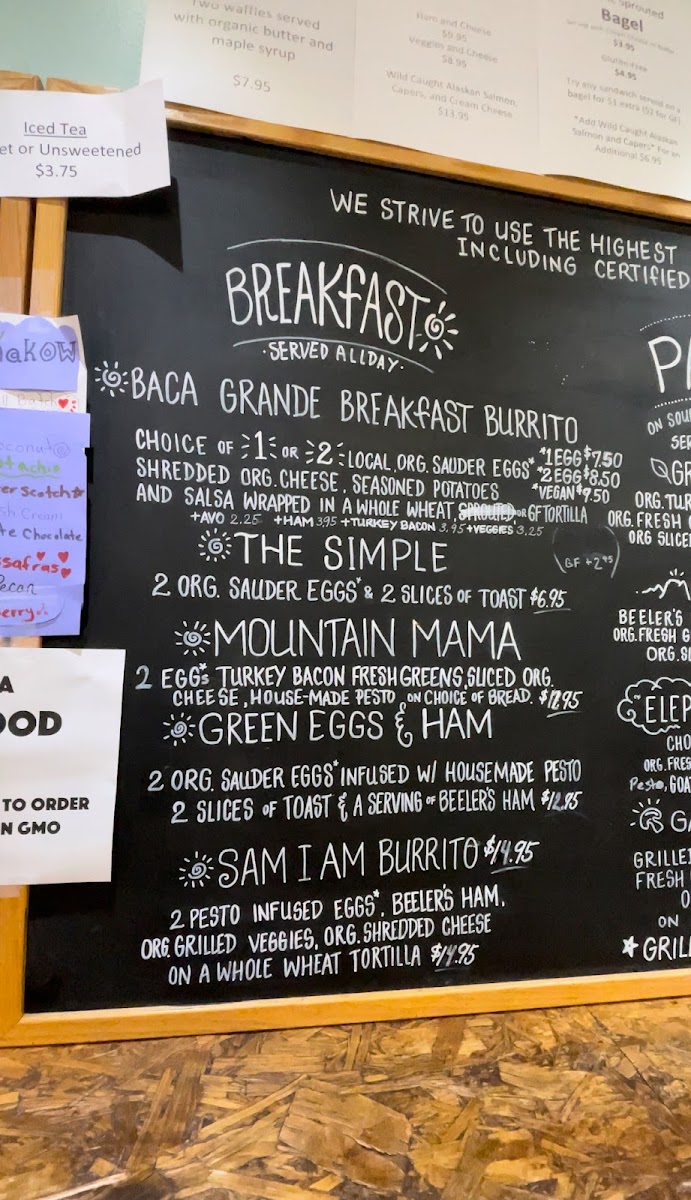 Two waffles served
with organic butter and
maple syrup
$7.95
Ham and Cheese
$9.95
Veggies and Cheese
$8.95
Wild Caught Alaskan Salmon,
Capers, and Cream Cheese
$13.95
Sprouted
Bagel
$3.95
Gluten Free
$4.95
Try any sandwich served on a
bagel for $1 extra ($2 for GF)
*Add Wild Caught Alaskan
Salmon and Capers* For an
Additional $6.95
Iced Tea
et or Unsweetened
$3.75
akow
oconut
tachio
erscotch
sh Cream
te Chocolate
ssafras
Pecan
berry
A
OOD
TO ORDER
N GMO
WE STRIVE TO USE THE HIGHEST
INCLUDING CERTIFIED
BREAKFAST
·SERVED ALLDAY·
BACA GRANDE BREAKFAST BURRITO
CHOICE OF 1 OR 2 LOCAL, ORG. SAUDER EGGS* *1EGG $7.50
SHREDDED ORG. CHEESE, SEASONED POTATOES *2EGG $8.50
AND SALSA WRAPPED IN A WHOLE WHEAT, SPROUTED, OR GF TORTILLA *VEGAN $9.50
+AVO 2.25 +HAM 3.95 +TURKEY BACON 3.95 +VEGGIES 3.25
GF +2.95
THE SIMPLE
2 ORG. SAUDER EGGS* & 2 SLICES OF TOAST $6.95
MOUNTAIN MAMA
2 EGGS* TURKEY BACON FRESH GREENS, SLICED ORG.
CHEESE, HOUSE-MADE PESTO, ON CHOICE OF BREAD. $12.95
GREEN EGGS & HAM
2 ORG. SAUDER EGGS* INFUSED W/ HOUSEMADE PESTO
2 SLICES OF TOAST & A SERVING OF BEELER'S HAM $12.95
SAM I AM BURRITO $14.95
2 PESTO INFUSED EGGS*, BEELER'S HAM,
ORG. GRILLED VEGGIES, ORG. SHREDDED CHEESE
ON A WHOLE WHEAT TORTILLA $14.95
P
ON SOU
SER
GR
ORG. TUR
ORG. FRESH
ORG SLICE
BEELER'S
ORG. FRESH G
ORG. SL
ELEP
CHO
ORG. FRES
Pesto, GOA
GA
GRILLE
FRESH
O
ON
GRIL